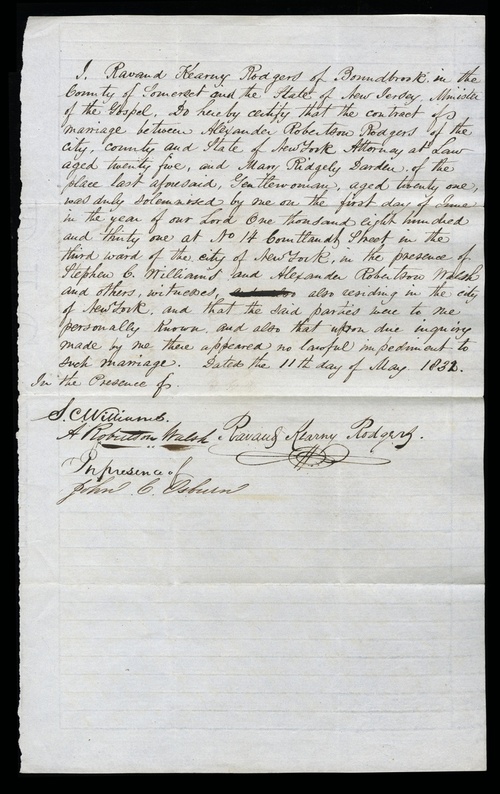 I. Ravaud Kearny Rodgers of Boundbrook in the
County of Somerset and the State of New Jersey, Minister
of the Gospel, Do hereby certify that the contract of
marriage between Alexander Robertson Rodgers of the
city, county and State of New York Attorney at Law
aged twenty five, and Mary Ridgely Darden, of the
place last aforesaid, Gentlewoman, aged twenty one,
was duly solemnised by me on the first day of June
in the year of our Lord One thousand eight hundred
and thirty one, at No 14 Courtlandt Street in the
third ward of the city of New York, in the presence of
Stephen C. Williams and Alexander Robertson Walsh
and others, witnesses, also residing in the city
of New York, and that the said parties were to me
personally known, and also that upon due inquiry
made by me there appeared no lawful impediment to
such marriage. Dated the 11th day of May 1832.
In the Presence of.
S. C. Williams.
A Robertson Walsh Ravaud Kearny Rodgers.
In presence of
John C. Osburn